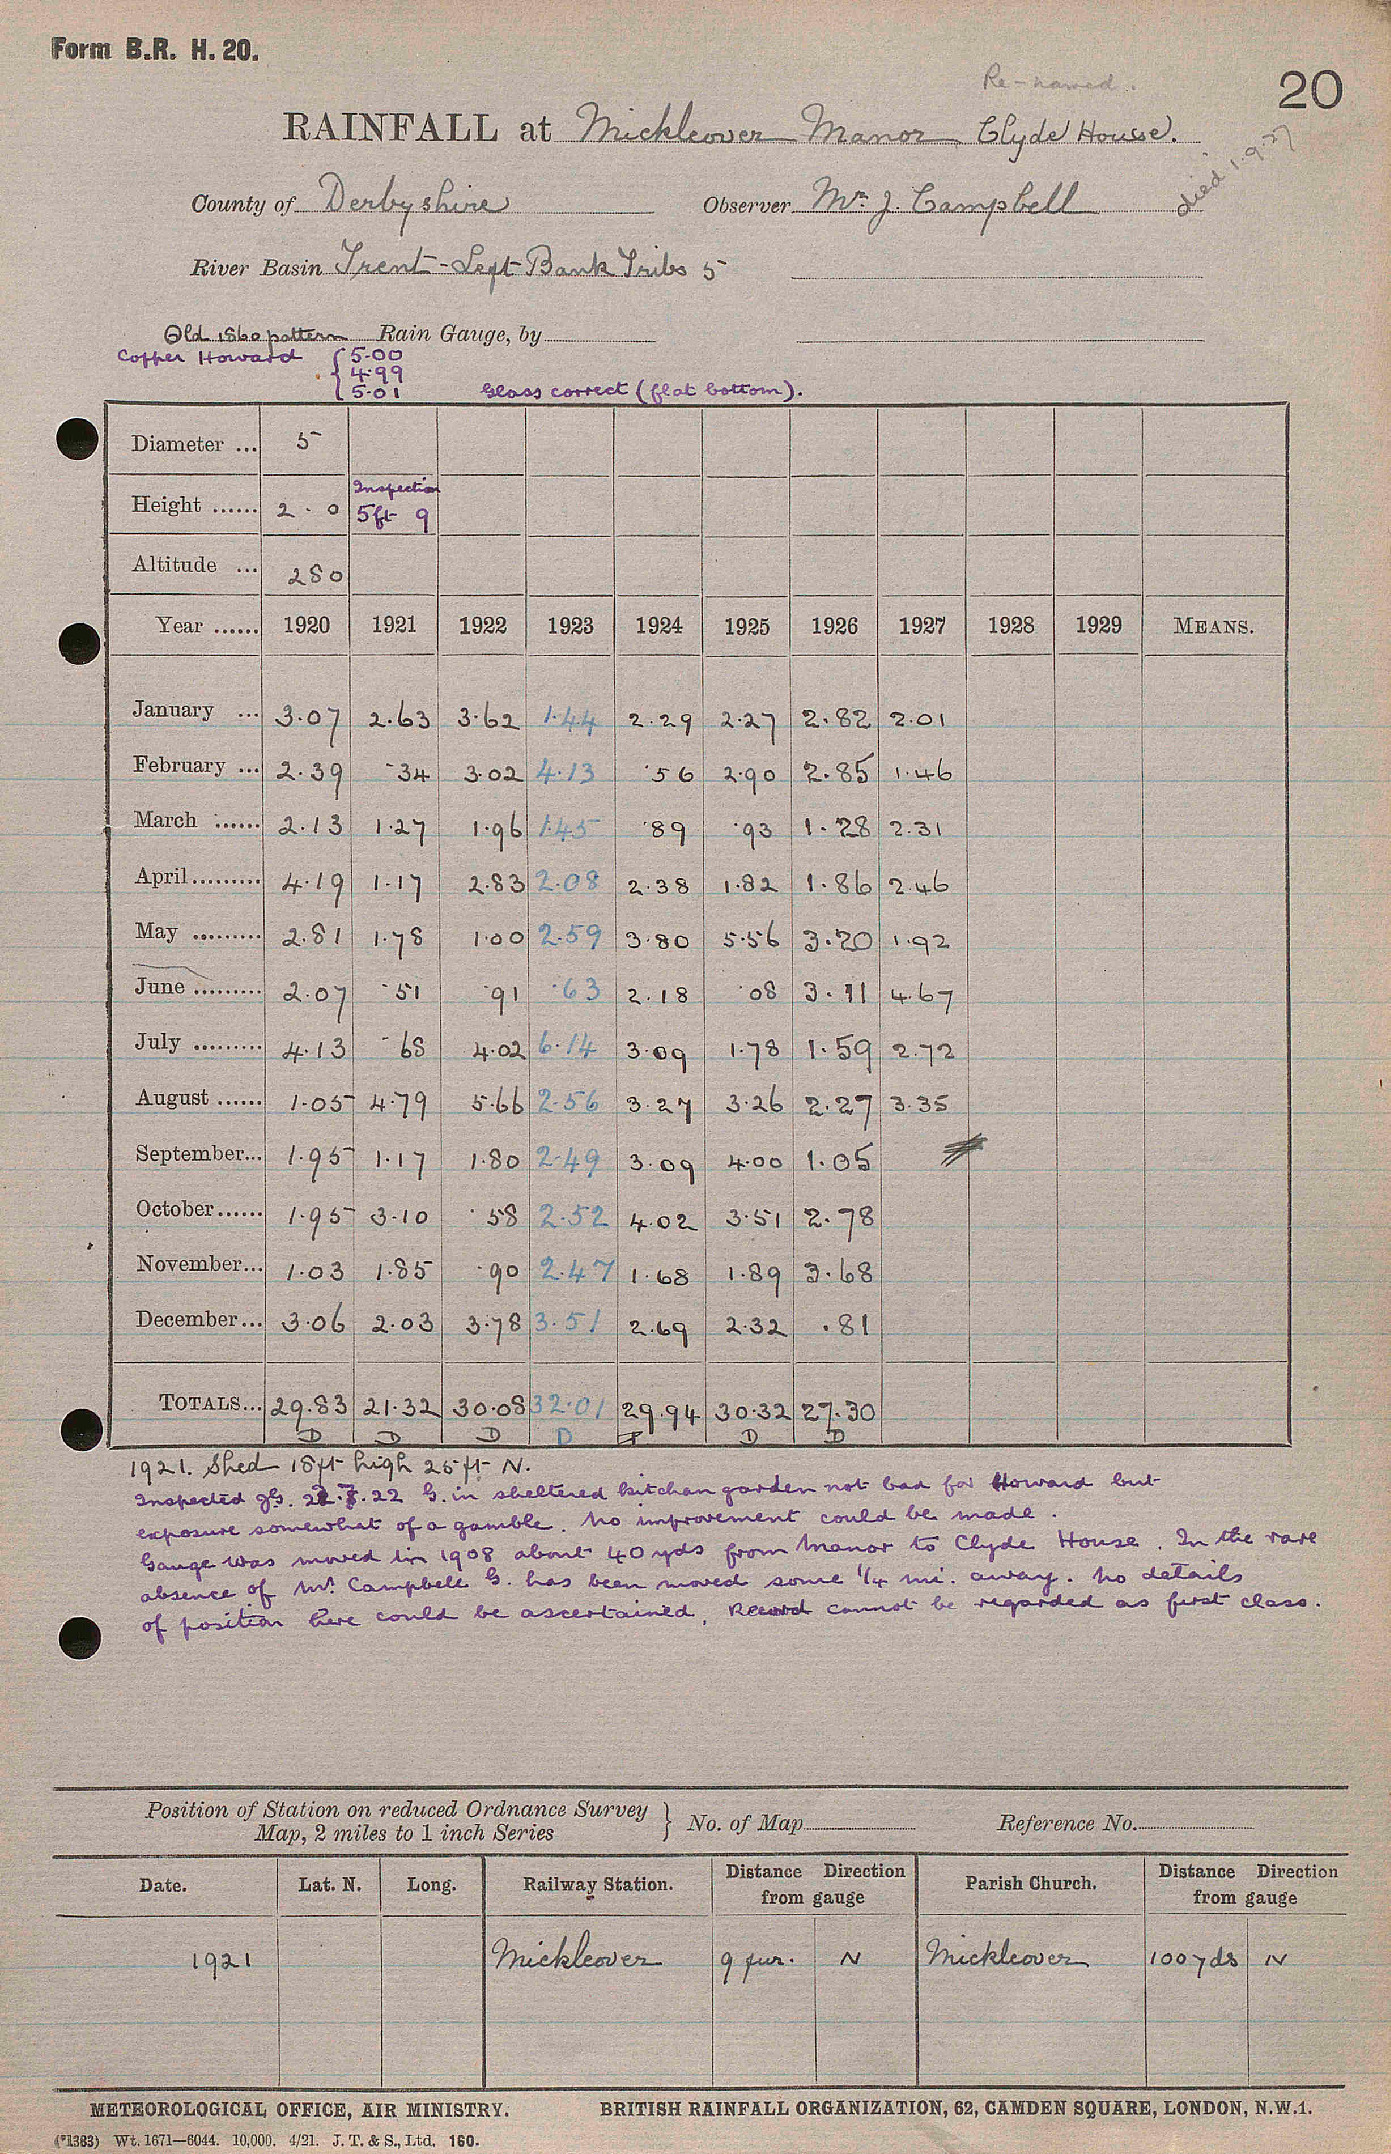 Form B.R. H. 20.
Re-named.
20
RAINFALL at Mickleover Manor, Clyde House.
County of Derbyshire Observer Mr. J. Campbell died 1.9.27
River Basin Trent - Left Bank Tribs 5
Old 1860 pattern Rain Gauge, by
Copper Howard { 5.00
4.99
5.01 Glass correct (flat bottom).
Diameter ... 5
Height ...... 2 . 0 Inspection 5ft 9
Altitude ... 280
Year ...... 1920 1921 1922 1923 1924 1925 1926 1927 1928 1929 MEANS.
January ... 3.07 2.63 3.62 1.44 2.29 2.27 2.82 2.01
February ... 2.39 .34 3.02 4.13 .56 2.90 2.85 1.46
March ...... 2.13 1.27 1.96 1.45 .89 .93 1.28 2.31
April......... 4.19 1.17 2.83 2.08 2.38 1.82 1.86 2.46
May ......... 2.81 1.78 1.00 2.59 3.80 5.56 3.20 1.92
June ......... 2.07 .51 .91 .63 2.18 .08 3.11 4.67
July ......... 4.13 .68 4.02 6.14 3.09 1.78 1.59 2.72
August ...... 1.05 4.79 5.66 2.56 3.27 3.26 2.27 3.35
September... 1.95 1.17 1.80 2.49 3.09 4.00 1.05
October...... 1.95 3.10 .58 2.52 4.02 3.51 2.78
November... 1.03 1.85 .90 2.47 1.68 1.89 3.68
December... 3.06 2.03 3.78 3.51 2.69 2.32 .81
TOTALS... 29.83 21.32 30.08 32.01 29.94 30.32 27.30
D D D D D D
1921. Shed 18ft high 25ft N.
Inspected JG. .22 G. in sheltered kitchen garden not bad for Howard but
exposure somewhat of a gamble. No improvement could be made.
Gauge was moved in 1908 about 40 yds from Manor to Clyde House. In the rare
absence of Mr. Campbell G. has been moved some 1/4 mi. away. No details
of position here could be ascertained, Record cannot be regarded as first class.
Position of Station on reduced Ordnance Survey
Map, 2 miles to 1 inch Series } No. of Map Reference No.
Date. Lat. N. Long. Railway Station. Distance Direction from gauge Parish Church. Distance Direction from gauge
1921 Mickleover 9 fur. N Mickleover 100 yds N
METEOROLOGICAL OFFICE, AIR MINISTRY. BRITISH RAINFALL ORGANIZATION, 62, CAMDEN SQUARE, LONDON, N.W.1.
(*1383) Wt. 1671—6044. 10,000. 4/21. J. T. & S., Ltd. 160.